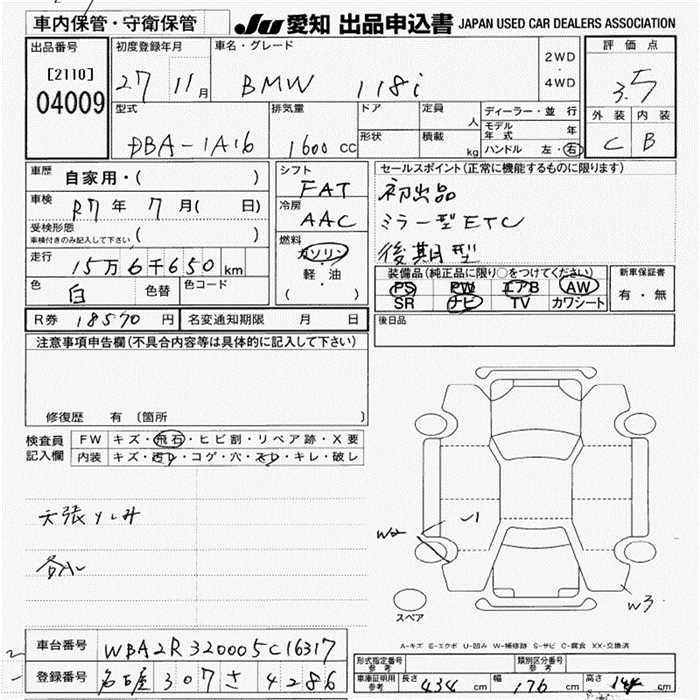 車内保管・守衛保管
JU 愛知 出品申込書 JAPAN USED CAR DEALERS ASSOCIATION
出品番号
[2110]
04009
初度登録年月
27 11月
車名・グレード
BMW 118i
2WD
・
4WD
評価点
3.5
外装 内装
C B
型式
DBA-1A16
排気量
1600 cc
ドア
形状
定員
人
積載
kg
ディーラー・並行
モデル年式 年
ハンドル 左・右
車歴 自家用・( )
車検 R7年 7月( 日)
受検形態
車検付きのみ記入して下さい ( )
走行
15万6千650km
色 白 色替
色コード
シフト
FAT
冷房
AAC
燃料
ガソリン
軽・油
( )
セールスポイント(正常に機能するものに限ります)
初出品
ミラー型ETC
後期型
装備品(純正品に限り○をつけてください)
PS PW エアB AW
SR ナビ TV カワシート
新車保証書
有・無
R券 18570円
名変通知期限 月 日
後日品
注意事項申告欄(不具合内容等は具体的に記入して下さい)
修復歴 有 〔箇所 〕
検査員記入欄
FW キズ・飛石・ヒビ割・リペア跡・X要
内装 キズ・汚レ・コゲ・穴・スレ・キレ・破レ
天張りしみ
W2
W3
スペア
A-キズ E-エクボ U-凹み W-補修跡 S-サビ C-腐食 XX-交換済
車台番号 WBA2R320005C16317
登録番号 名古屋 307 さ 4286
形式指定番号 参考
類別区分番号 参考
車庫証明用参考 長さ 434 cm 幅 176 cm 高さ 144 cm